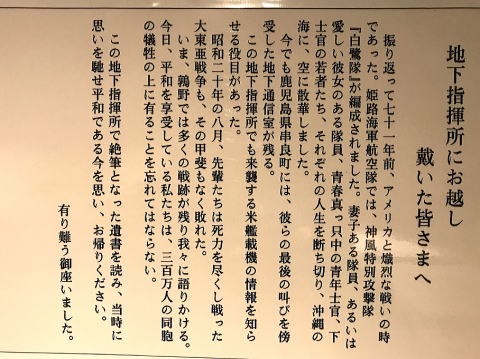 地下指揮所にお越し
戴いた皆さまへ
振り返って七十一年前、アメリカと熾烈な戦いの時
であった。姫路海軍航空隊では、神風特別攻撃隊
『白鷺隊』が編成されました。妻子ある隊員、あるいは
愛しい彼女のある隊員、青春真っ只中の青年士官、下
士官の若者たち、それぞれの人生を断ち切り、沖縄の
海に、空に散華しました。
今でも鹿児島県串良町には、彼らの最後の叫びを傍
受した地下通信室が残る。
この地下指揮所でも来襲する米艦載機の情報を知ら
せる役目があった。
昭和二十年の八月、先輩たちは死力を尽くし戦った
大東亜戦争も、その甲斐もなく敗れた。
いま、鶉野では多くの戦跡が残り我々に語りかける。
今日、平和を享受している私たちは、三百万人の同胞
の犠牲の上に有ることを忘れてはならない。
この地下指揮所で絶筆となった遺書を読み、当時に
思いを馳せ平和である今を思い、お帰りください。
有り難う御座いました。